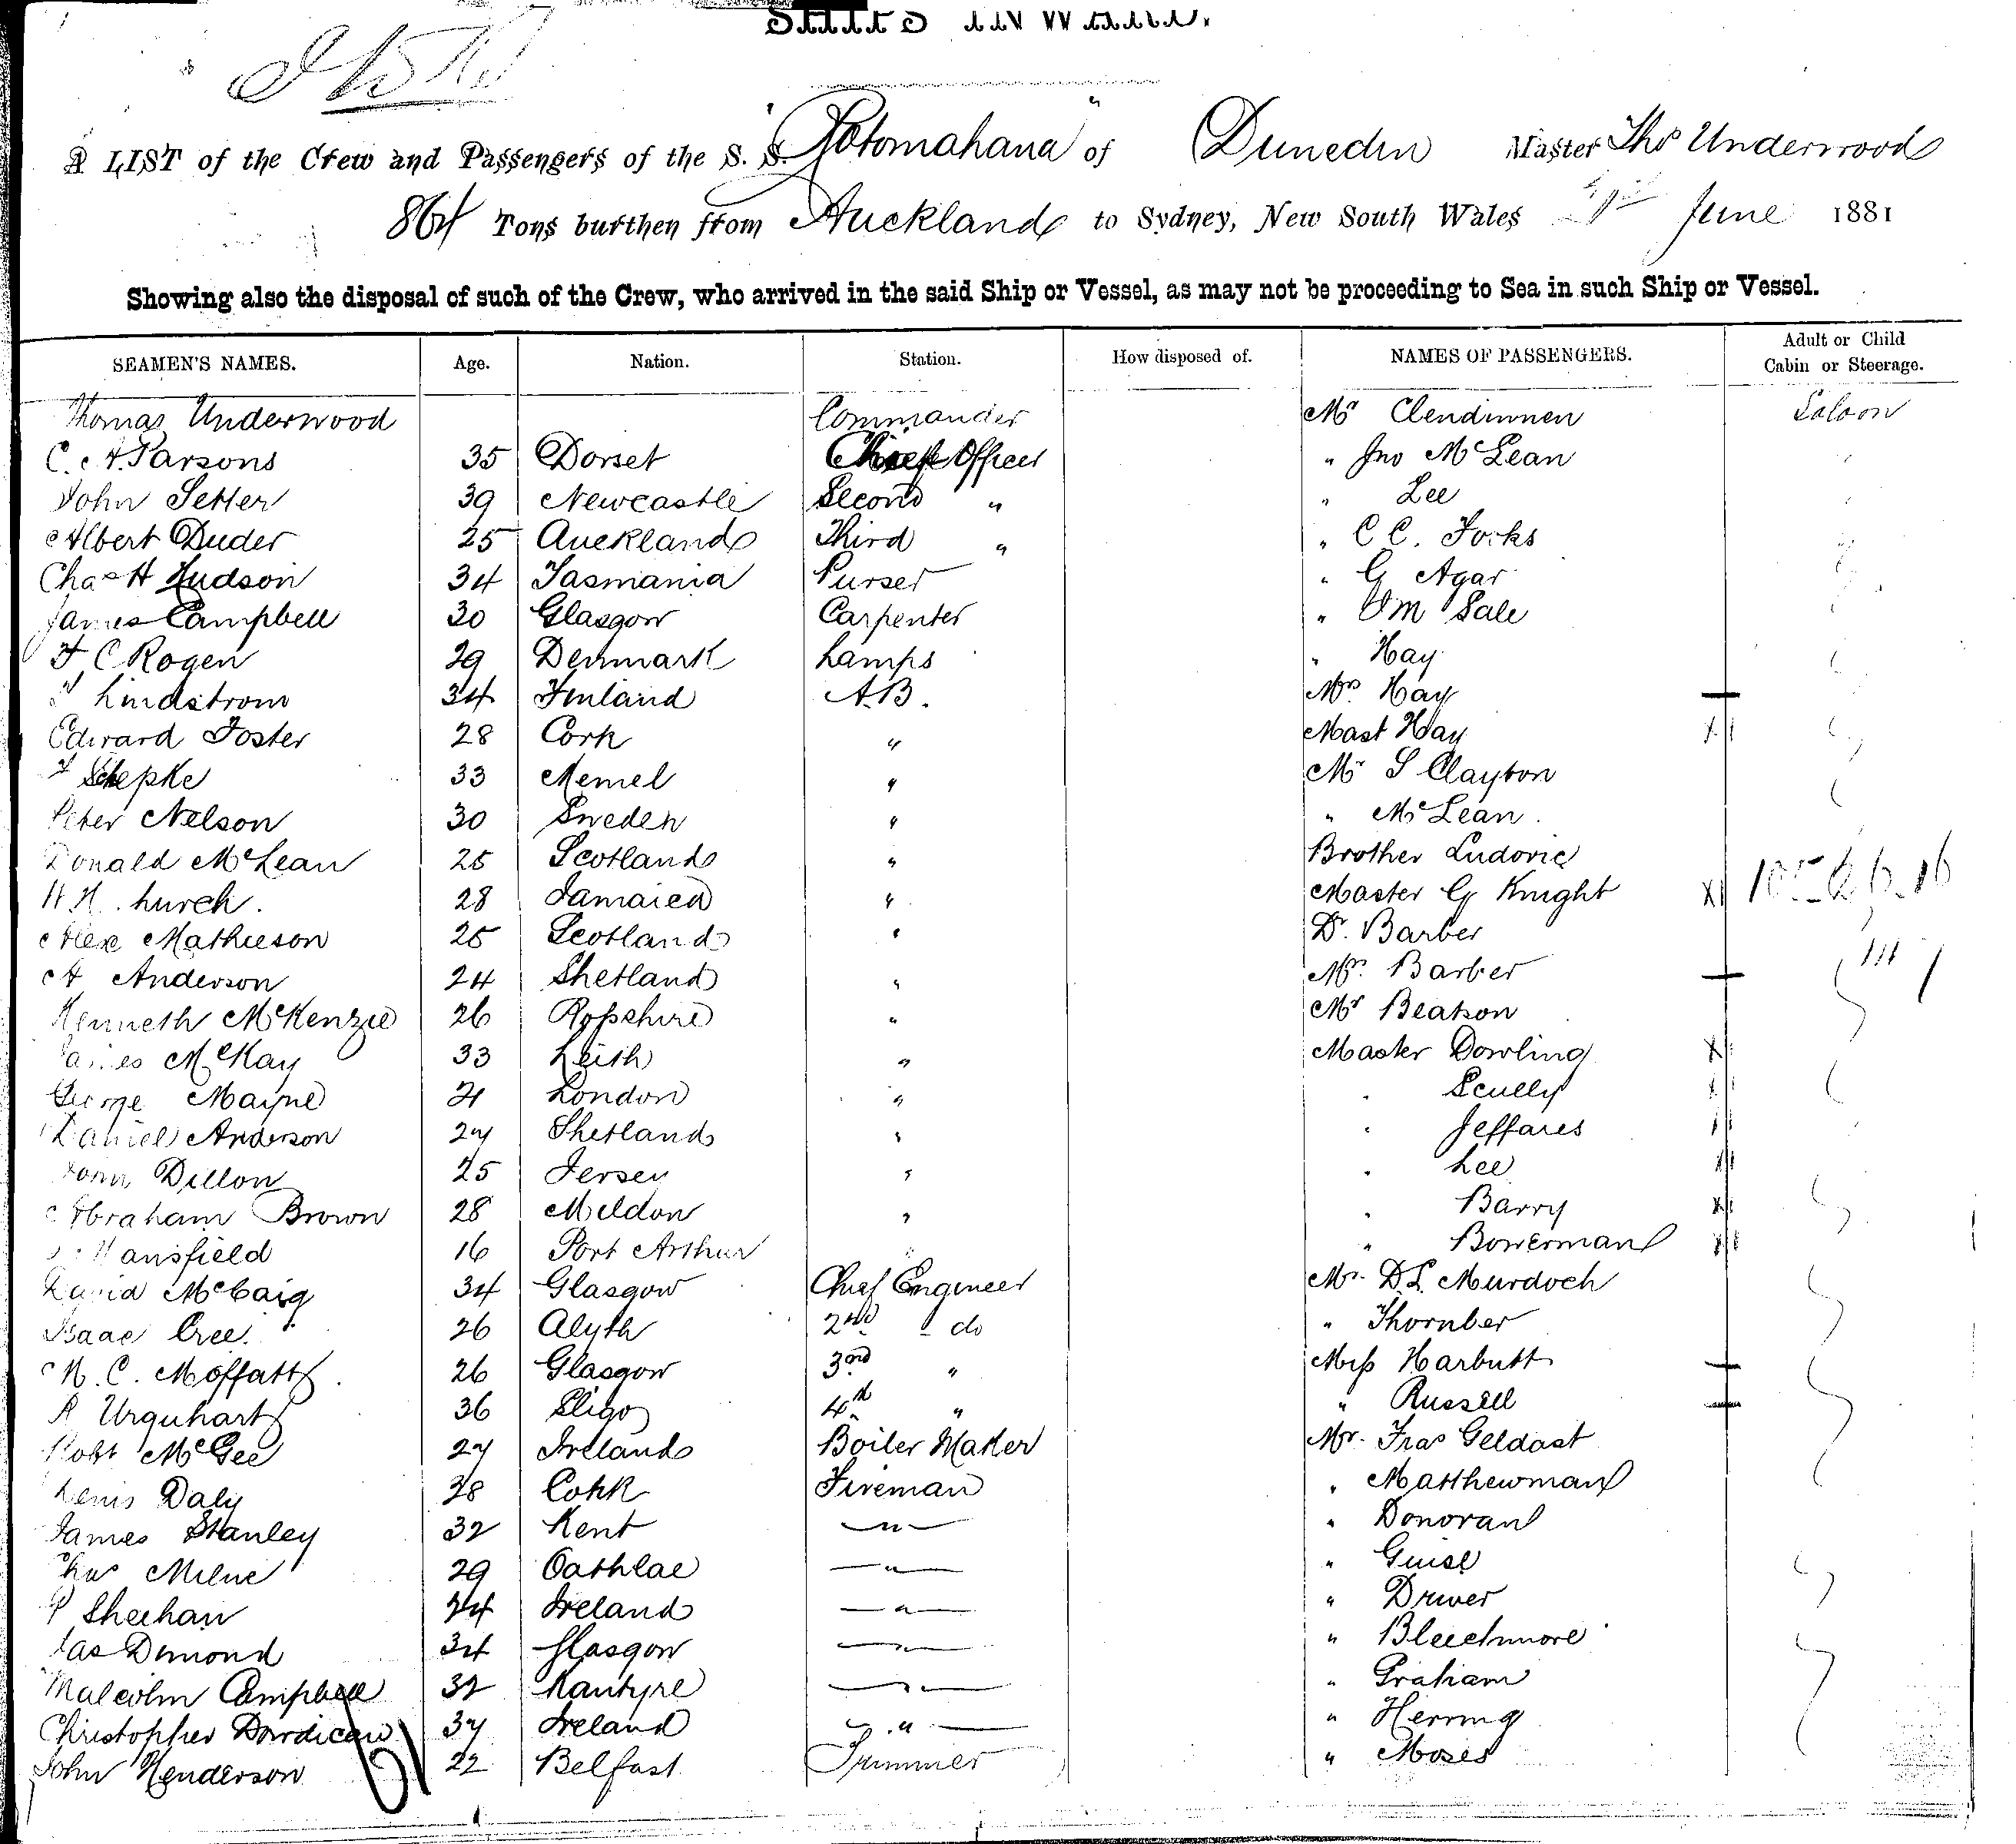 A LIST of the Crew and Passengers of the S. S. "Rotomahana" of Dunedin Master Thos Underwood
864 Tons burthen from Auckland to Sydney, New South Wales June 1881
Showing also the disposal of such of the Crew, who arrived in the said Ship or Vessel, as may not be proceeding to Sea in such Ship or Vessel.
SEAMEN'S NAMES. Age. Nation. Station. How disposed of. NAMES OF PASSENGERS. Adult or Child Cabin or Steerage.
Thomas Underwood Commander Mr Clendinnen Saloon
C. A. Parsons 35 Dorset Chief Officer " Jno McLean
John Setter 39 Newcastle Second " " Lee
Albert Duder 25 Auckland Third " " C C.
Chas H Hudson 34 Tasmania Purser " G Agar
James Campbell 30 Glasgow Carpenter " Sale
F C Rogen 29 Denmark Lamps " Hay
Lindstrom 34 Finland A.B. Mrs Hay
Edward Foster 28 Cork " Mast Hay
Schepke 33 Memel " Mr S Clayton
Peter Nelson 30 Sweden " " McLean
Donald McLean 25 Scotland " Brother Ludovic
28 Jamaica " Master G Knight
Alex Mathieson 25 Scotland " Dr. Barber
A Anderson 24 Shetland " Barber
Kenneth McKenzie 26 Rossshire " Mr Beatson
James McKay 33 Leith " Master Dowling
George Mayne 21 London " " Scully
Daniel Anderson 27 Shetland " " Jeffares
John Dillon 25 Jersey " " Lee
Abraham Brown 28 Meldon " " Barry
Mansfield 16 Port Arthur " " Bowerman
David McCaig 34 Glasgow Chief Engineer Mr. D L Murdoch
Isaac Cree 26 Alyth 2nd do " Thornber
M. C. Moffatt 26 Glasgow 3rd " Miss Harbutt
R Urquhart 36 Sligo 4th " " Russell
Robt McGee 27 Ireland Boiler Maker Mr. Fras Geldast
Denis Daly 38 Cork Fireman " Matthewman
James Stanley 32 Kent " " Donovan
Milne 29 " " Guise
P Sheehan 24 Ireland " " Driver
Jas Dimond 34 Glasgow " " Bleechmore
Malcolm Campbell 32 Kantyre " " Graham
Christopher 37 Ireland " " Herring
John Henderson 22 Belfast Trimmer " Moses